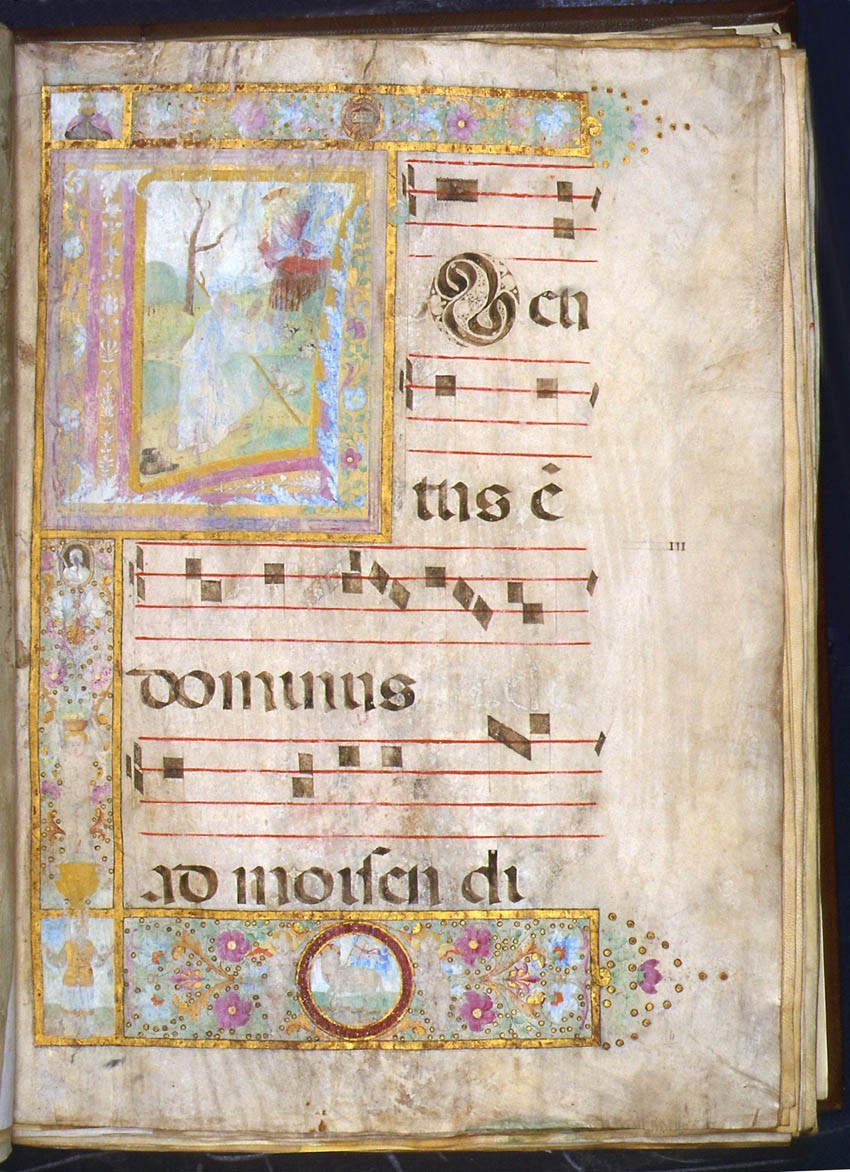 LOcu
tus ē
III
dominus
ad moiſen di